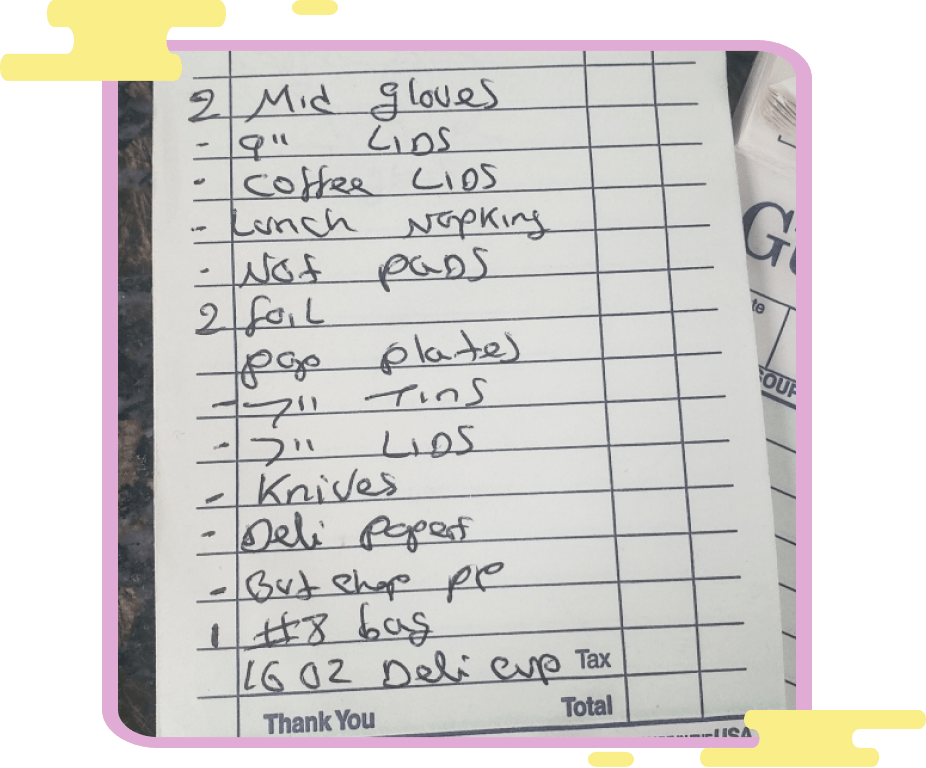 2 Mid gloves
- 9" LIDS
- Coffee LIDS
- Lunch Napking
- Not paDS
2 foil
pgo plates
- 7" Tins
- 7" LIDS
- Knives
- Deli papert
- But chop pp
1 #8 bag
16 OZ Deli cup Tax
Thank You Total
USA
te